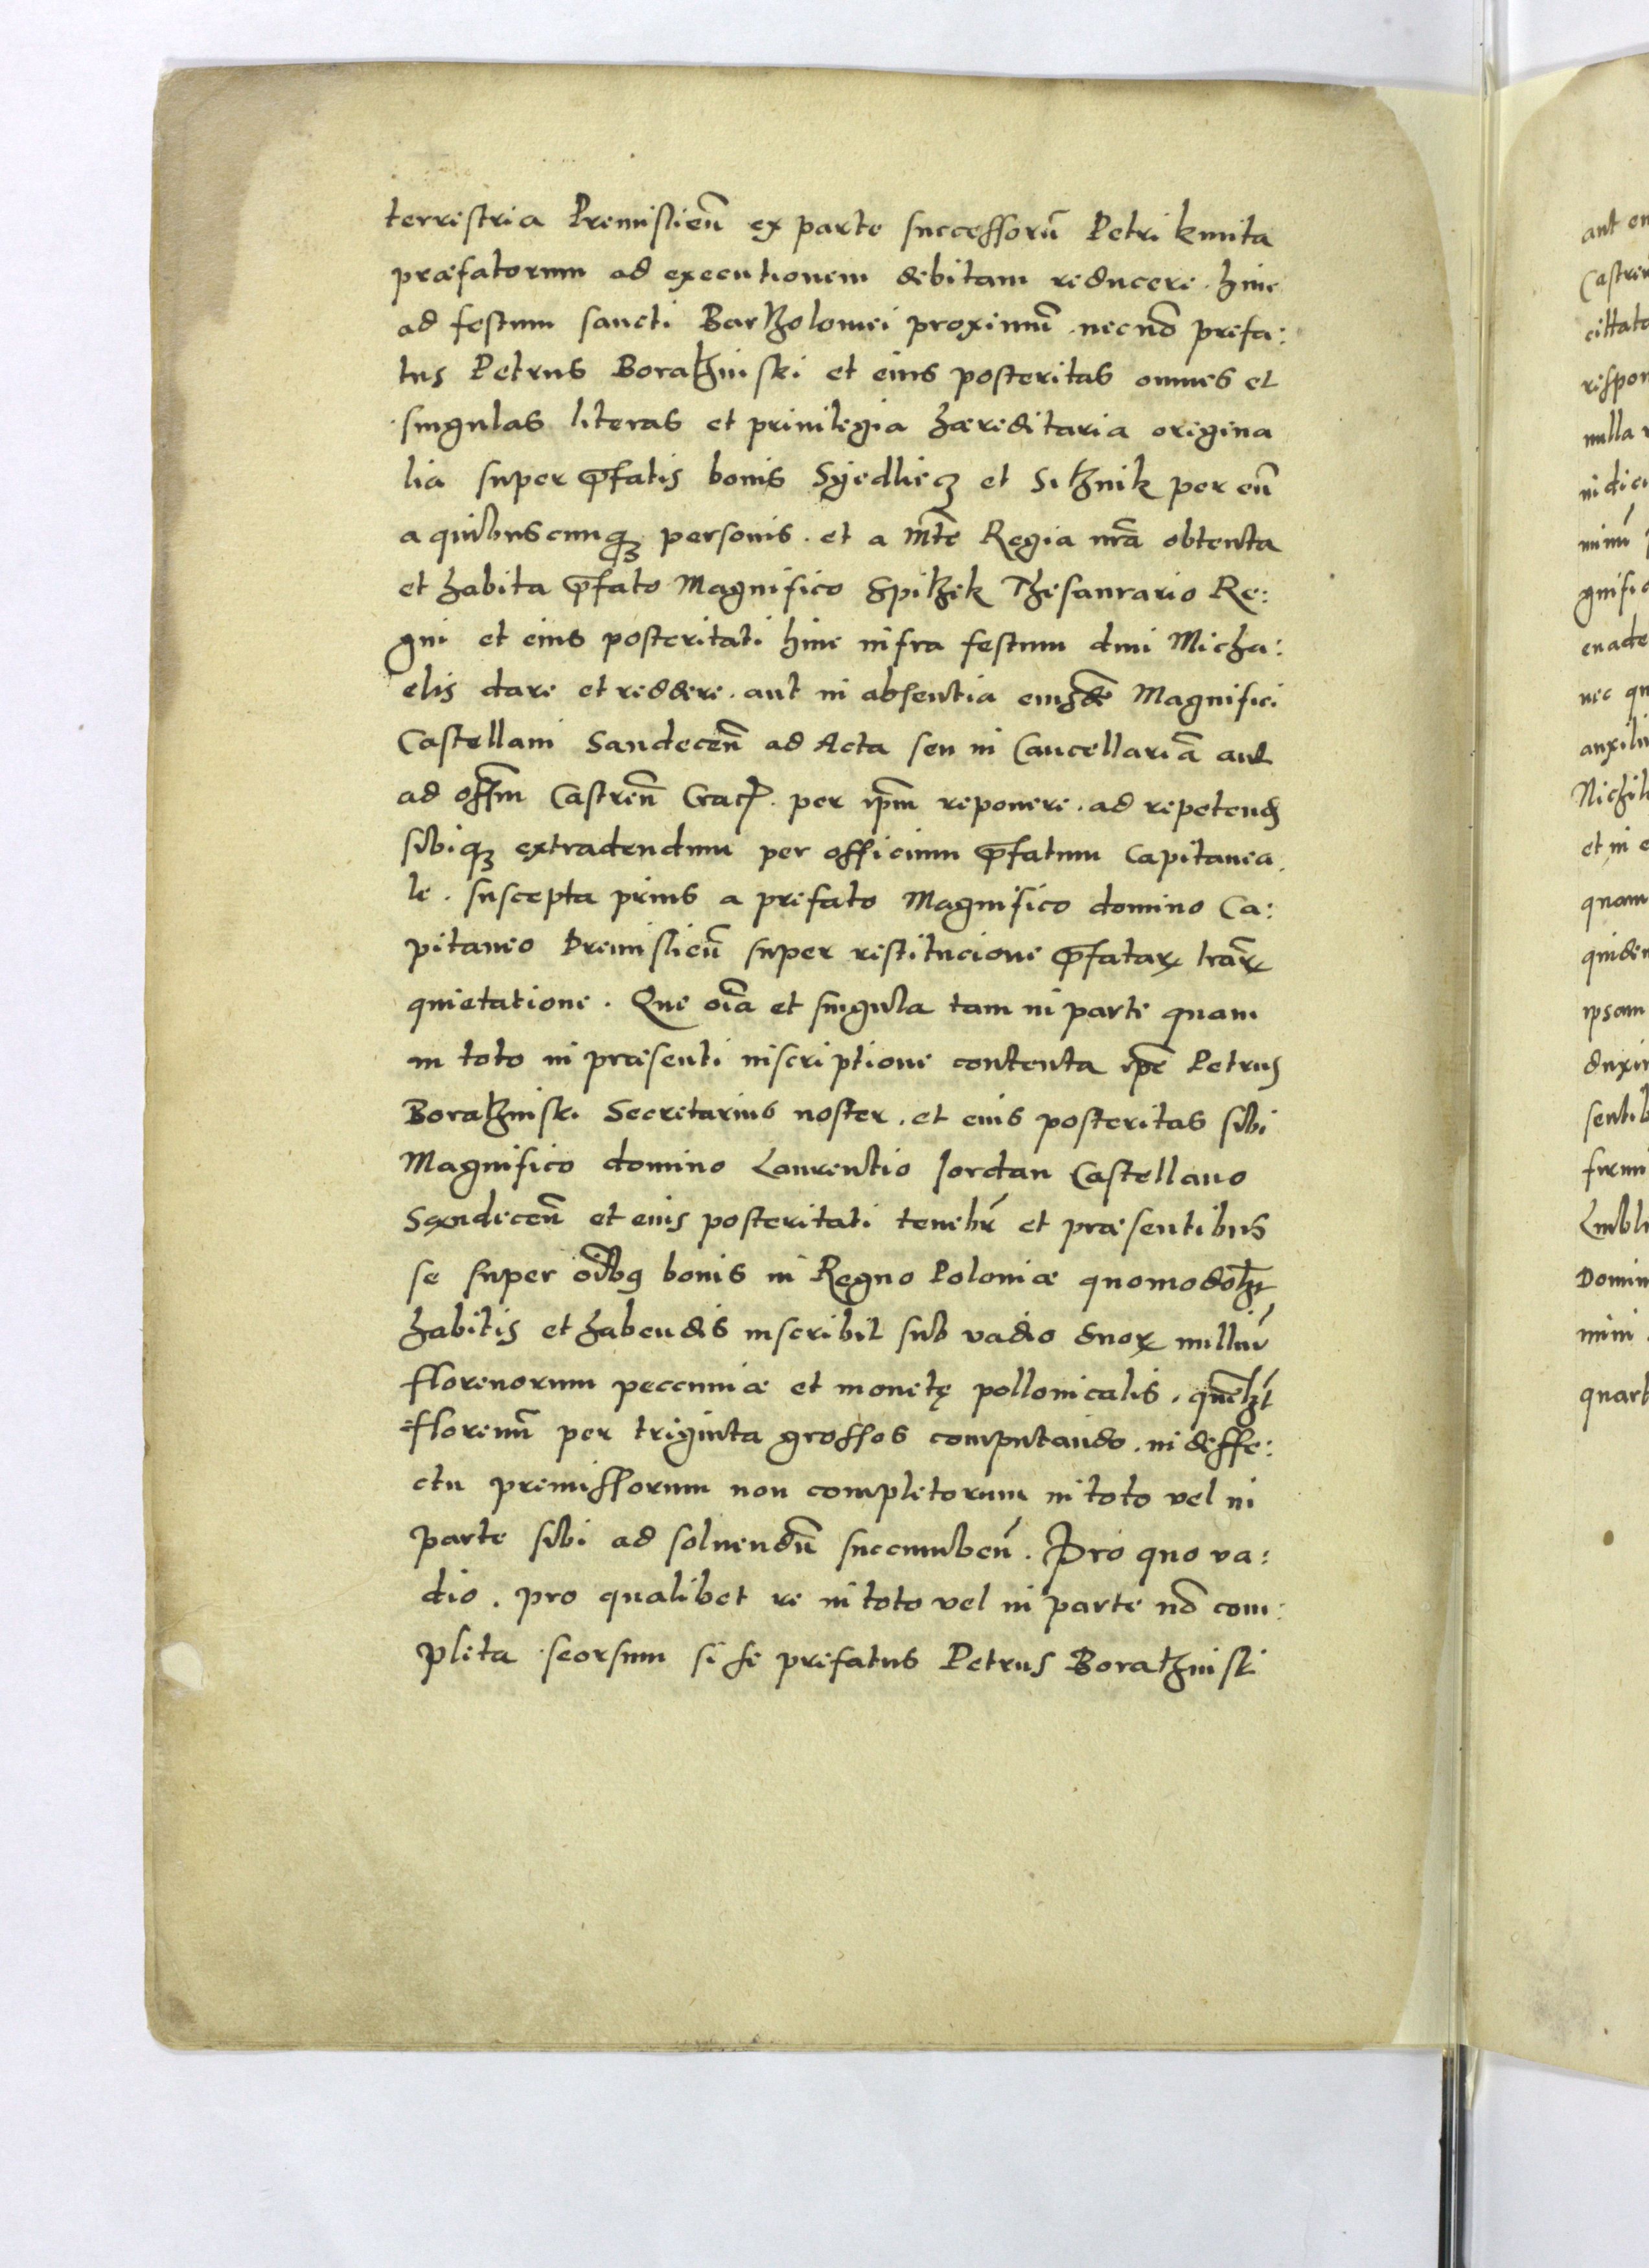 terrestria Premislieñ ex parte successorū Petri kmita
præfatorum ad executionem debitam reducere. hinc
ad festum sancti Bartholomei proximū. necnō prefa:
tus Petrus Borathinski et eius posteritas omnes et
singulas literas et privilegia hæreditaria origina
lia super p̄fatis bonis Syedliecz et Sithnik per eū
a quibuscunq; personis. et a Mt̄e Regia nr̄a obtenta
et habita p̄fato Magnifico Spithek Thesaurario Re:
gni et eius posteritati hinc infra festum dm̄i Micha:
elis dare et reddere. aut in absentia eiusdē Magnifici
Castellani Sandeceñ ad Acta seu in Cancellariā aut
ad off̄m Castreñ Crac̄. per ip̄m reponere. ad repetend̄
sibiq; extradendum per officium p̄fatum Capitanea.
le. suscepta prius a prefato Magnifico domino Ca:
pitaneo Premislieñ super restitucione p̄fatar̄ l̄rar̄
quietatione. Que oīa et singula tam in parte quam
in toto in præsenti inscriptione contenta ip̄e Petrus
Borathinski Secretarius noster. et eius posteritas sibi
Magnifico domino Laurentio Jordan Castellano
Sandeceñ et eius posteritati tenebr̄ et præsentibus
se super oībus bonis in Regno Poloniæ quomodolt̄
habitis et habendis inscribit sub vadio duor̄ milliū
florenorum peccuniæ et monetę pollonicalis. quēlt̄
florenū per triginta grossos computando. in deffe:
ctu premissorum non completorum in toto vel in
parte sibi ad solvendū succumbeñ. Pro quo va:
dio. pro qualibet re in toto vel in parte nō com:
pleta seorsum si se prefatus Petrus Borathinski